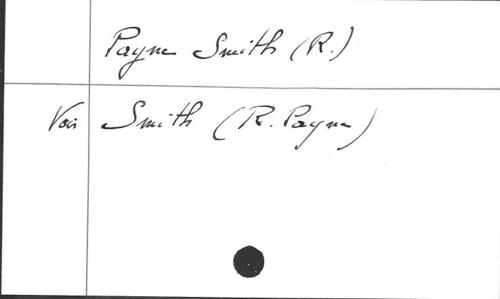 Payne Smith (R.)
Voir Smith (R. Payne)